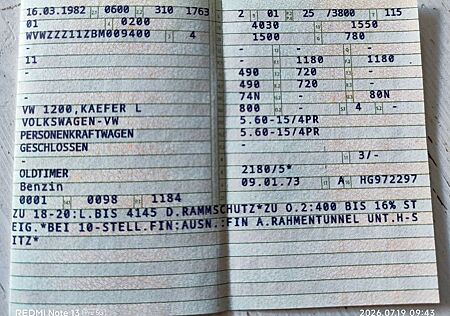 16.03.1982 0600 310 1763
01 0200
WVWZZZ11ZBM009400 4
-
11
-
-
VW 1200,KAEFER L
VOLKSWAGEN-VW
PERSONENKRAFTWAGEN
GESCHLOSSEN
-
OLDTIMER
Benzin
0001 0098 1184
2 01 25 /3800 115
4030 - 1550
1500 780
- - -
- 1180 1180
490 720 -
490 720 -
74N - 80N
800 - 4 -
5.60-15/4PR
5.60-15/4PR
- 3/-
2180/5*
09.01.73 A HG972297
ZU 18-20:L.BIS 4145 D.RAMMSCHUTZ*ZU O.2:400 BIS 16% ST
EIG.*BEI 10-STELL.FIN:AUSN.:FIN A.RAHMENTUNNEL UNT.H-S
ITZ*
REDMI Note 13
2026.07.19 09:43